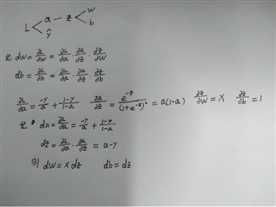 L a z w
ŷ b
记 dw = ∂L/∂w = ∂L/∂a ∂a/∂z ∂z/∂w
db = ∂L/∂b = ∂L/∂a ∂a/∂z ∂z/∂b
∂L/∂a = -y/a + 1-y/1-a ∂a/∂z = e^-z/(1+e^-z)² = a(1-a) ∂z/∂w = x ∂z/∂b = 1
记 da = ∂L/∂a = -y/a + 1-y/1-a
dz = ∂L/∂a · ∂a/∂z = a-y
则 dw = x dz db = dz